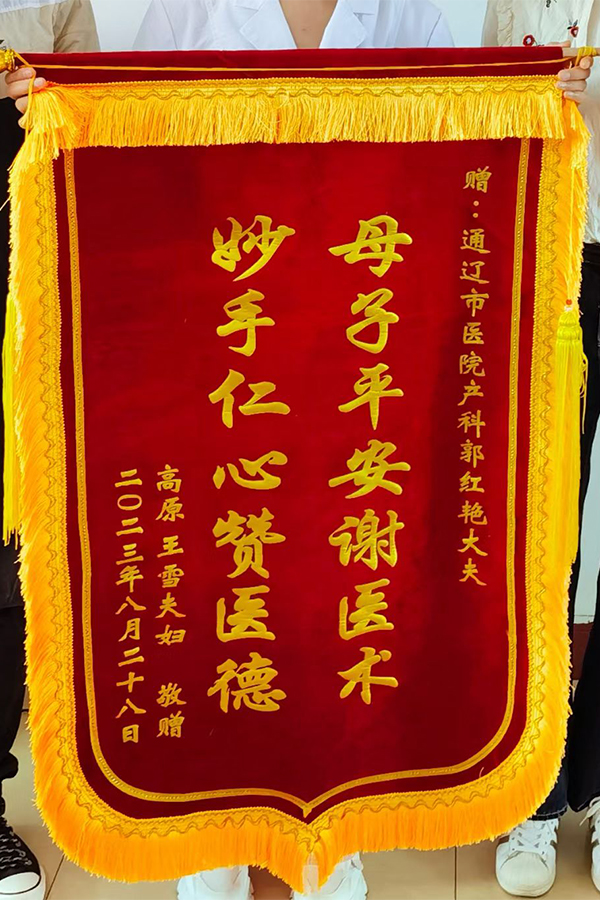 赠：通辽市医院产科郭红艳大夫
母子平安谢医术
妙手仁心赞医德
高原 王雪夫妇 敬赠
二〇二三年八月二十八日